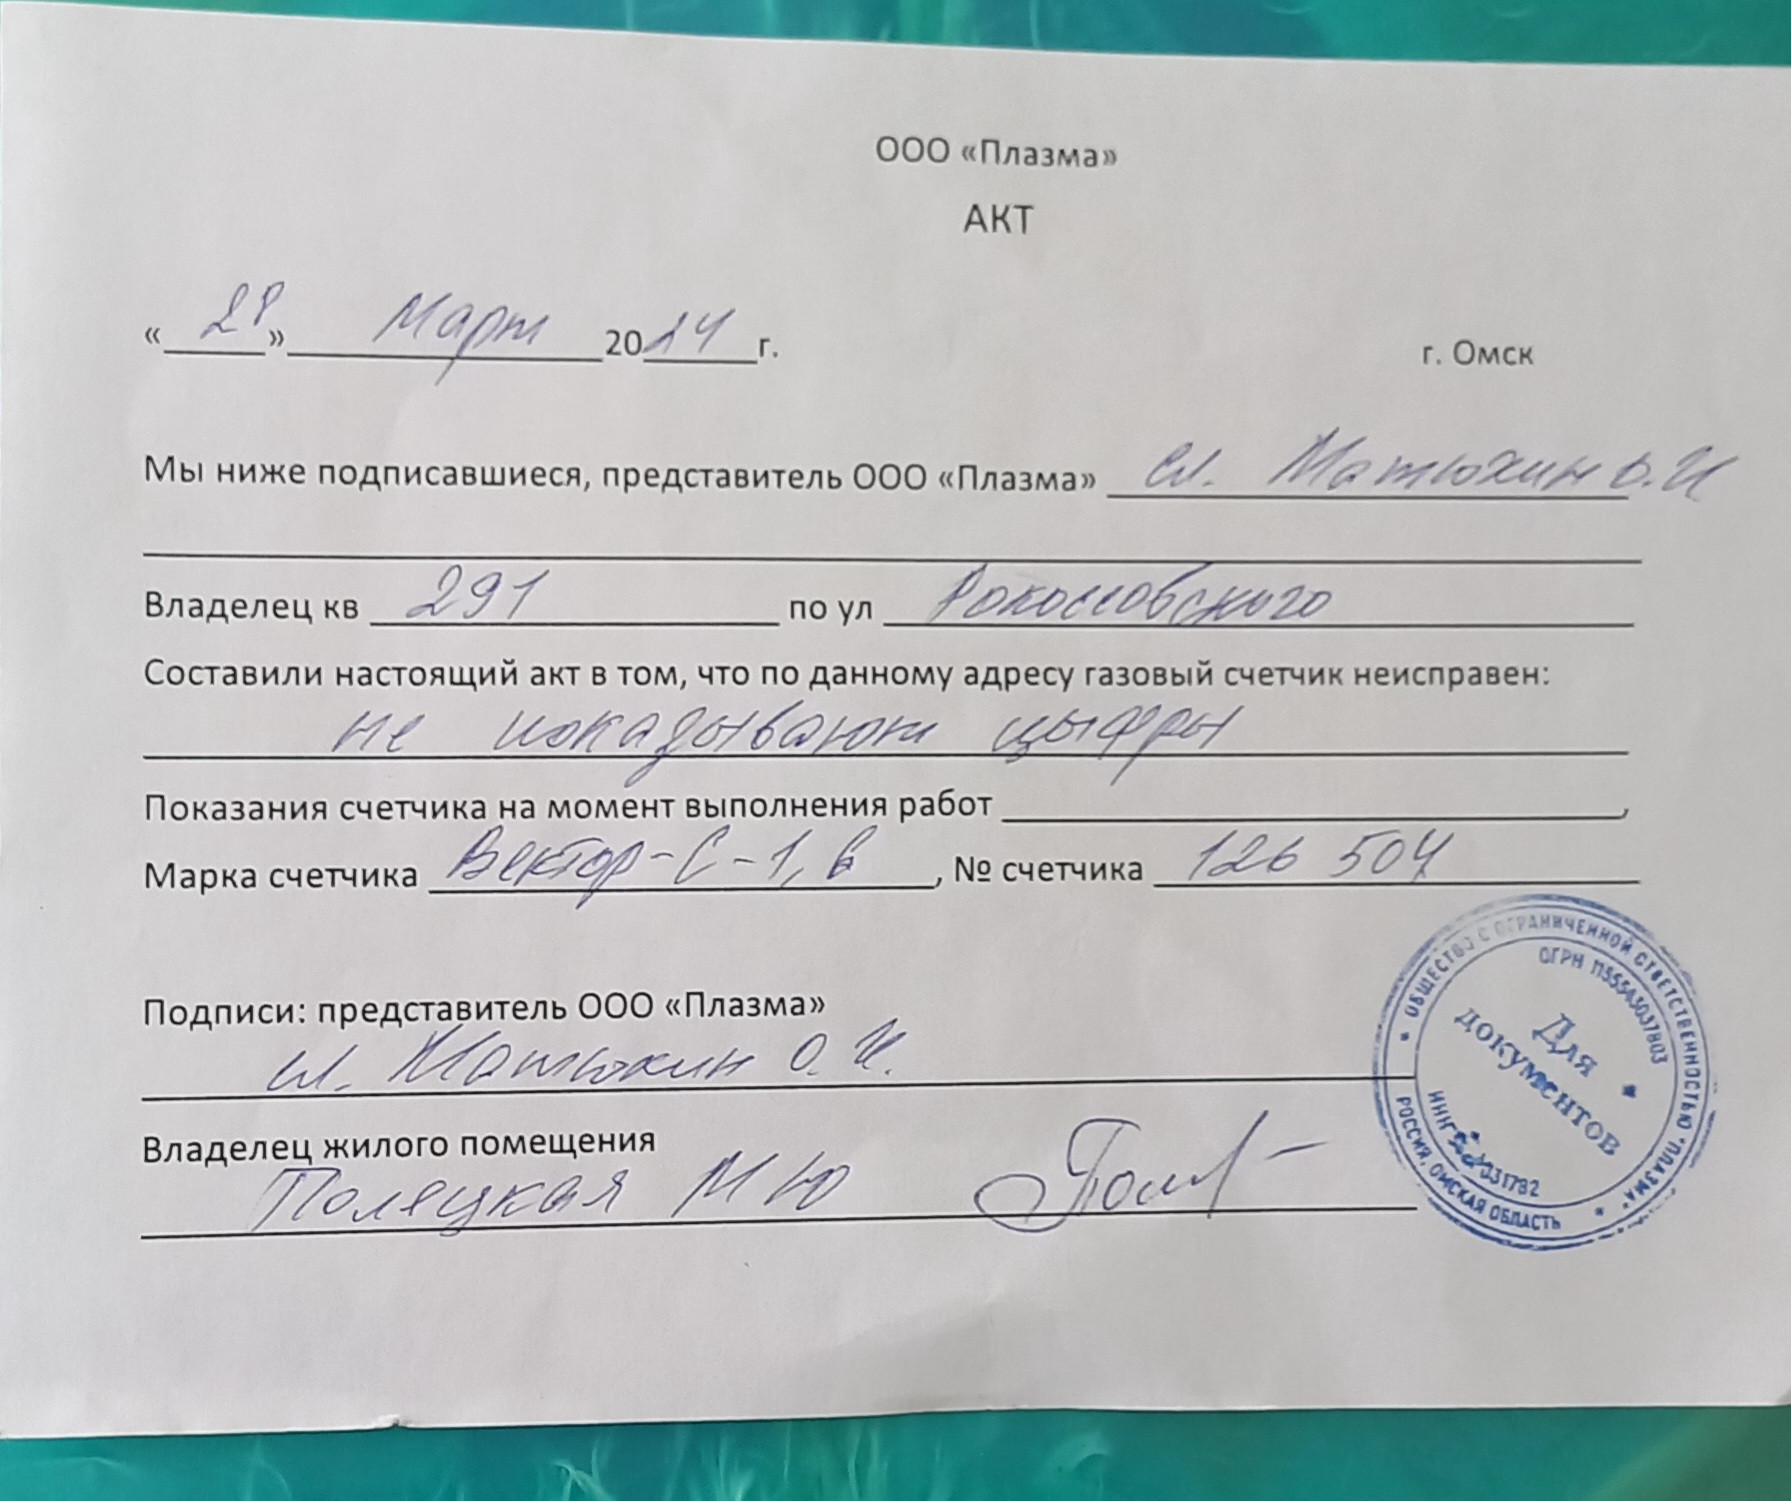 ООО «Плазма»
АКТ
« 28 » Март 2024 г. г. Омск
Мы ниже подписавшиеся, представитель ООО «Плазма» сл. Матюхин О.И
Владелец кв 291 по ул Рокоссовского
Составили настоящий акт в том, что по данному адресу газовый счетчик неисправен:
не показывают цыфры
Показания счетчика на момент выполнения работ ,
Марка счетчика Вектор-С-1,6 , № счетчика 126 504
Подписи: представитель ООО «Плазма»
сл. Матюхин О.И.
Владелец жилого помещения
Полецкая М Ю
ОБЩЕСТВО С ОГРАНИЧЕННОЙ ОТВЕТСТВЕННОСТЬЮ "ПЛАЗМА"
РОССИЯ, ОМСКАЯ ОБЛАСТЬ
ОГРН 1155543037803
Для
документов
ИНН